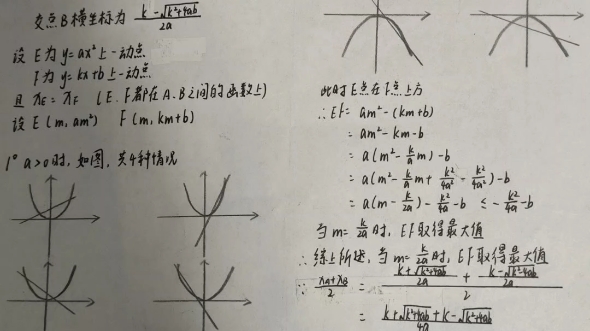 交点B横坐标为 (k-√(k²+4ab))/2a
设 E为 y=ax² 上一动点
F为 y=kx+b上一动点
且 xE = xF (E.F都在A.B之间的函数上)
设 E(m,am²) F(m,km+b)
1° a>0时,如图,共4种情况
此时E点在F点上方
∴EF= am²-(km+b)
= am²-km-b
= a(m²-k/a m)-b
= a(m²-k/a m+k²/4a²-k²/4a²)-b
= a(m-k/2a)-k²/4a-b ≤ -k²/4a-b
当m=k/2a时,EF取得最大值
∴综上所述,当m=k/2a时,EF取得最大值
∵ (xA+xB)/2 = ((k+√(k²+4ab))/2a + (k-√(k²+4ab))/2a)/2
= (k+√(k²+4ab)+k-√(k²+4ab))/4a